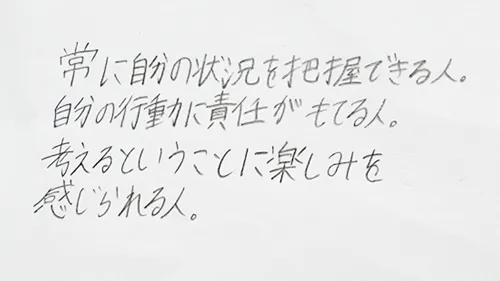 常に自分の状況を把握できる人。
自分の行動に責任がもてる人。
考えるということに楽しみを
感じられる人。